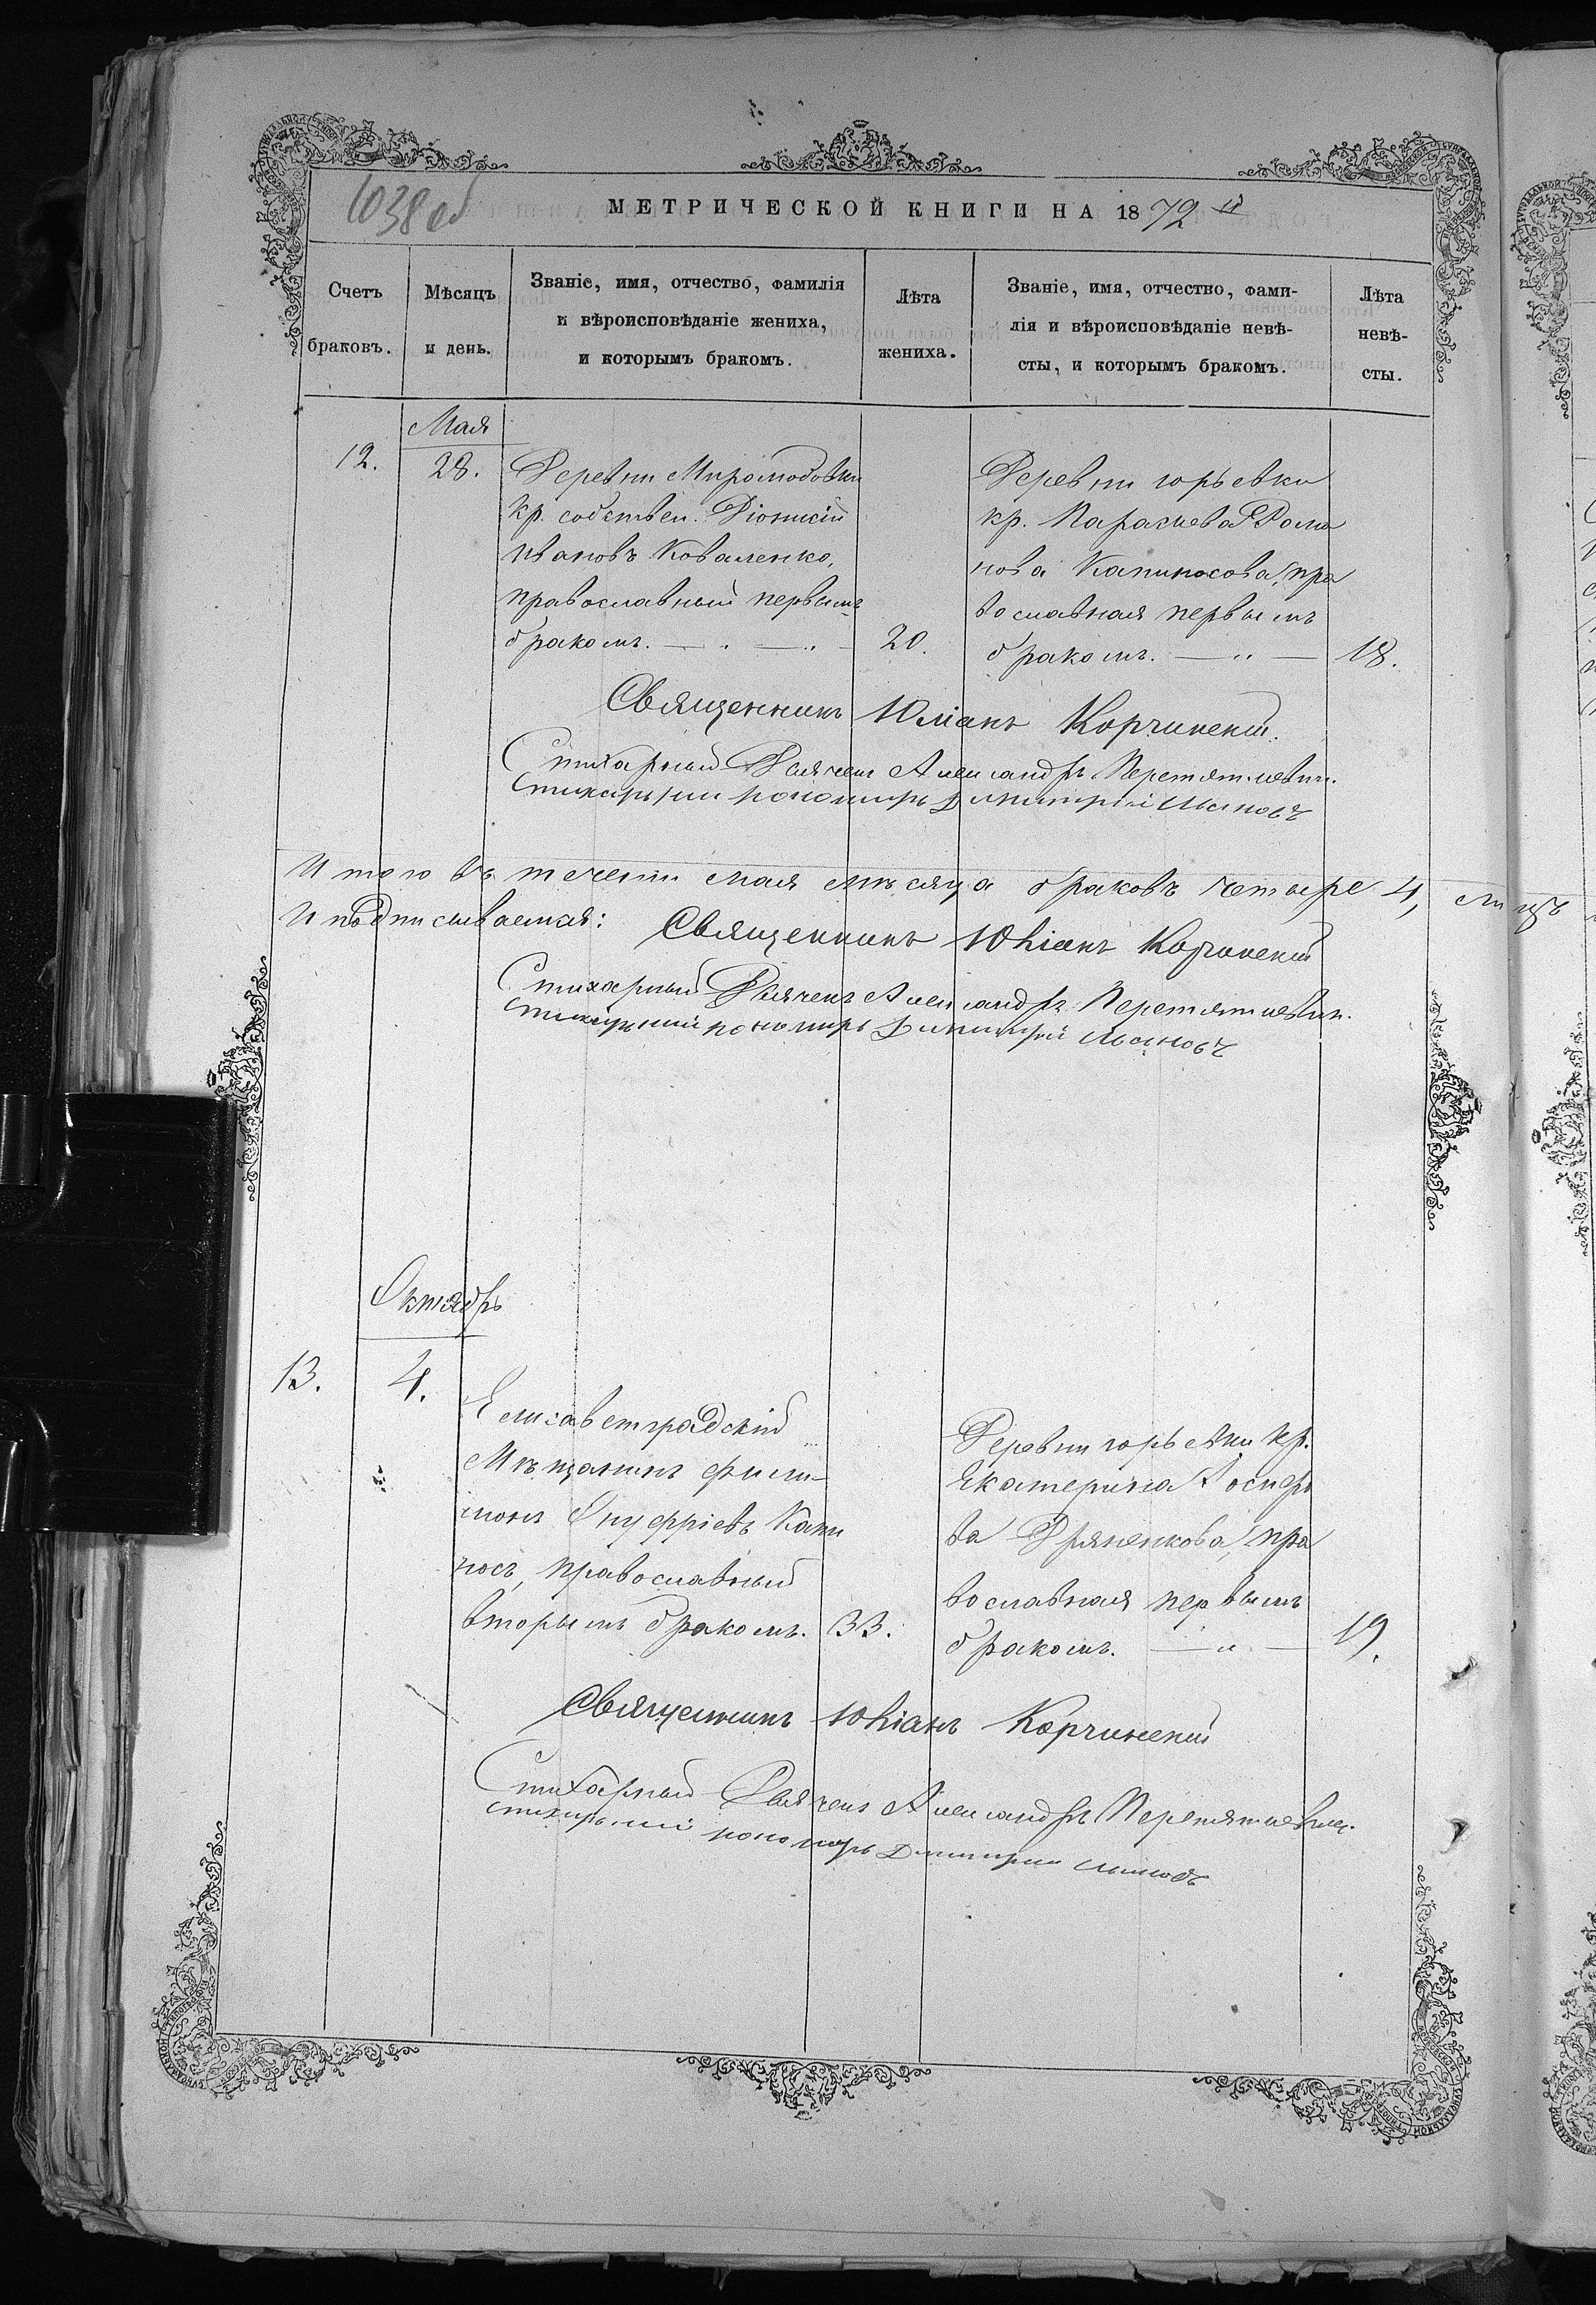 1038 об
МЕТРИЧЕСКОЙ КНИГИ НА 1872 й
Счетъ браковъ.
Мѣсяцъ и день.
Званіе, имя, отчество, фамилія
и вѣроисповѣданіе жениха,
и которымъ бракомъ.
Лѣта жениха.
Званіе, имя, отчество, фами-
лія и вѣроисповѣданіе невѣ-
сты, и которымъ бракомъ.
Лѣта невѣ-
сты.
Мая
12.
28.
Деревни Миромодовки
кр. собствен. Діонисій
Ивановъ Коваленко,
православный первымъ
бракомъ. — „ — „ —
20.
Деревни Юрьевки
кр. Параскева Рома
нова Капиносова, пра
вославная первымъ
бракомъ. — „ —
18.
Священникъ Юліанъ Корчинскій.
Стихарный Дьячекъ Александръ Перетяткевич.
Стихарный пономарь Димитрій
Итого въ течении мая мѣсяца браковъ четыре 4,
И подписываемся: Священникъ Юліанъ Корчинскій
Стихарный Дьячекъ Александръ Перетяткевич.
Стихарный пономарь Димитрій
Октябрь
13.
4.
Елисаветградскій
Мѣщанинъ Фили-
монъ Онуфріевъ Капи
носъ, православный
вторымъ бракомъ.
33.
Деревни Юрьевки кр.
Екатерина Іосифо
ва Дряненкова, пра
вославная первымъ
бракомъ. — „ —
19.
Священникъ Юліанъ Корчинскій
Стихарный Дьячекъ Александръ Перетяткевич.
Стихарный пономарь Димитрій